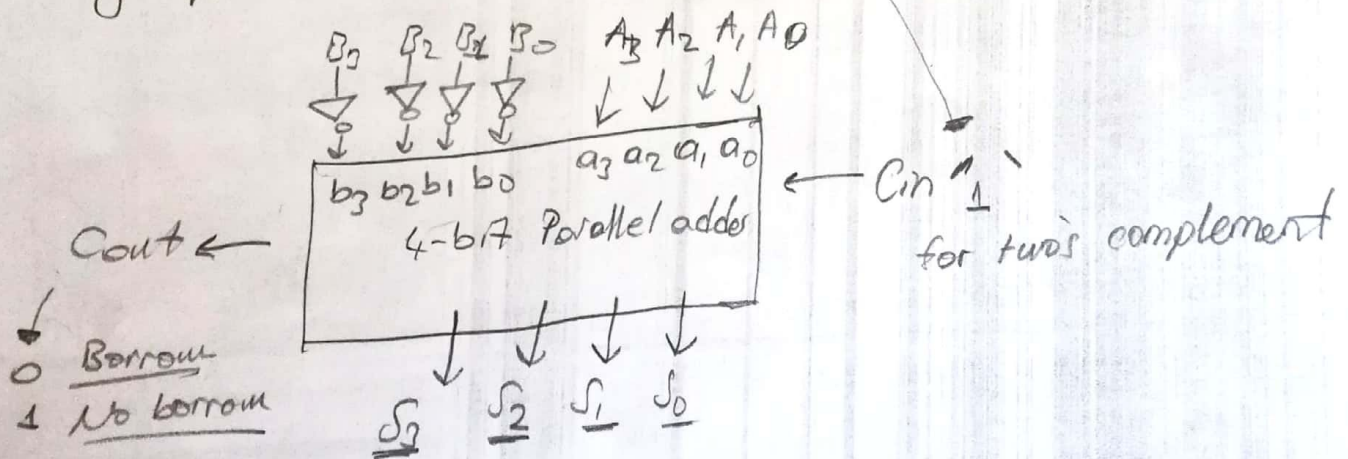 B3 B2 B1 B0 A3 A2 A1 A0
b3 b2 b1 b0 a3 a2 a1 a0
Cin "1"
4-bit Parallel adder
for two's complement
Cout
0 Borrow
1 No borrow
S3 S2 S1 S0